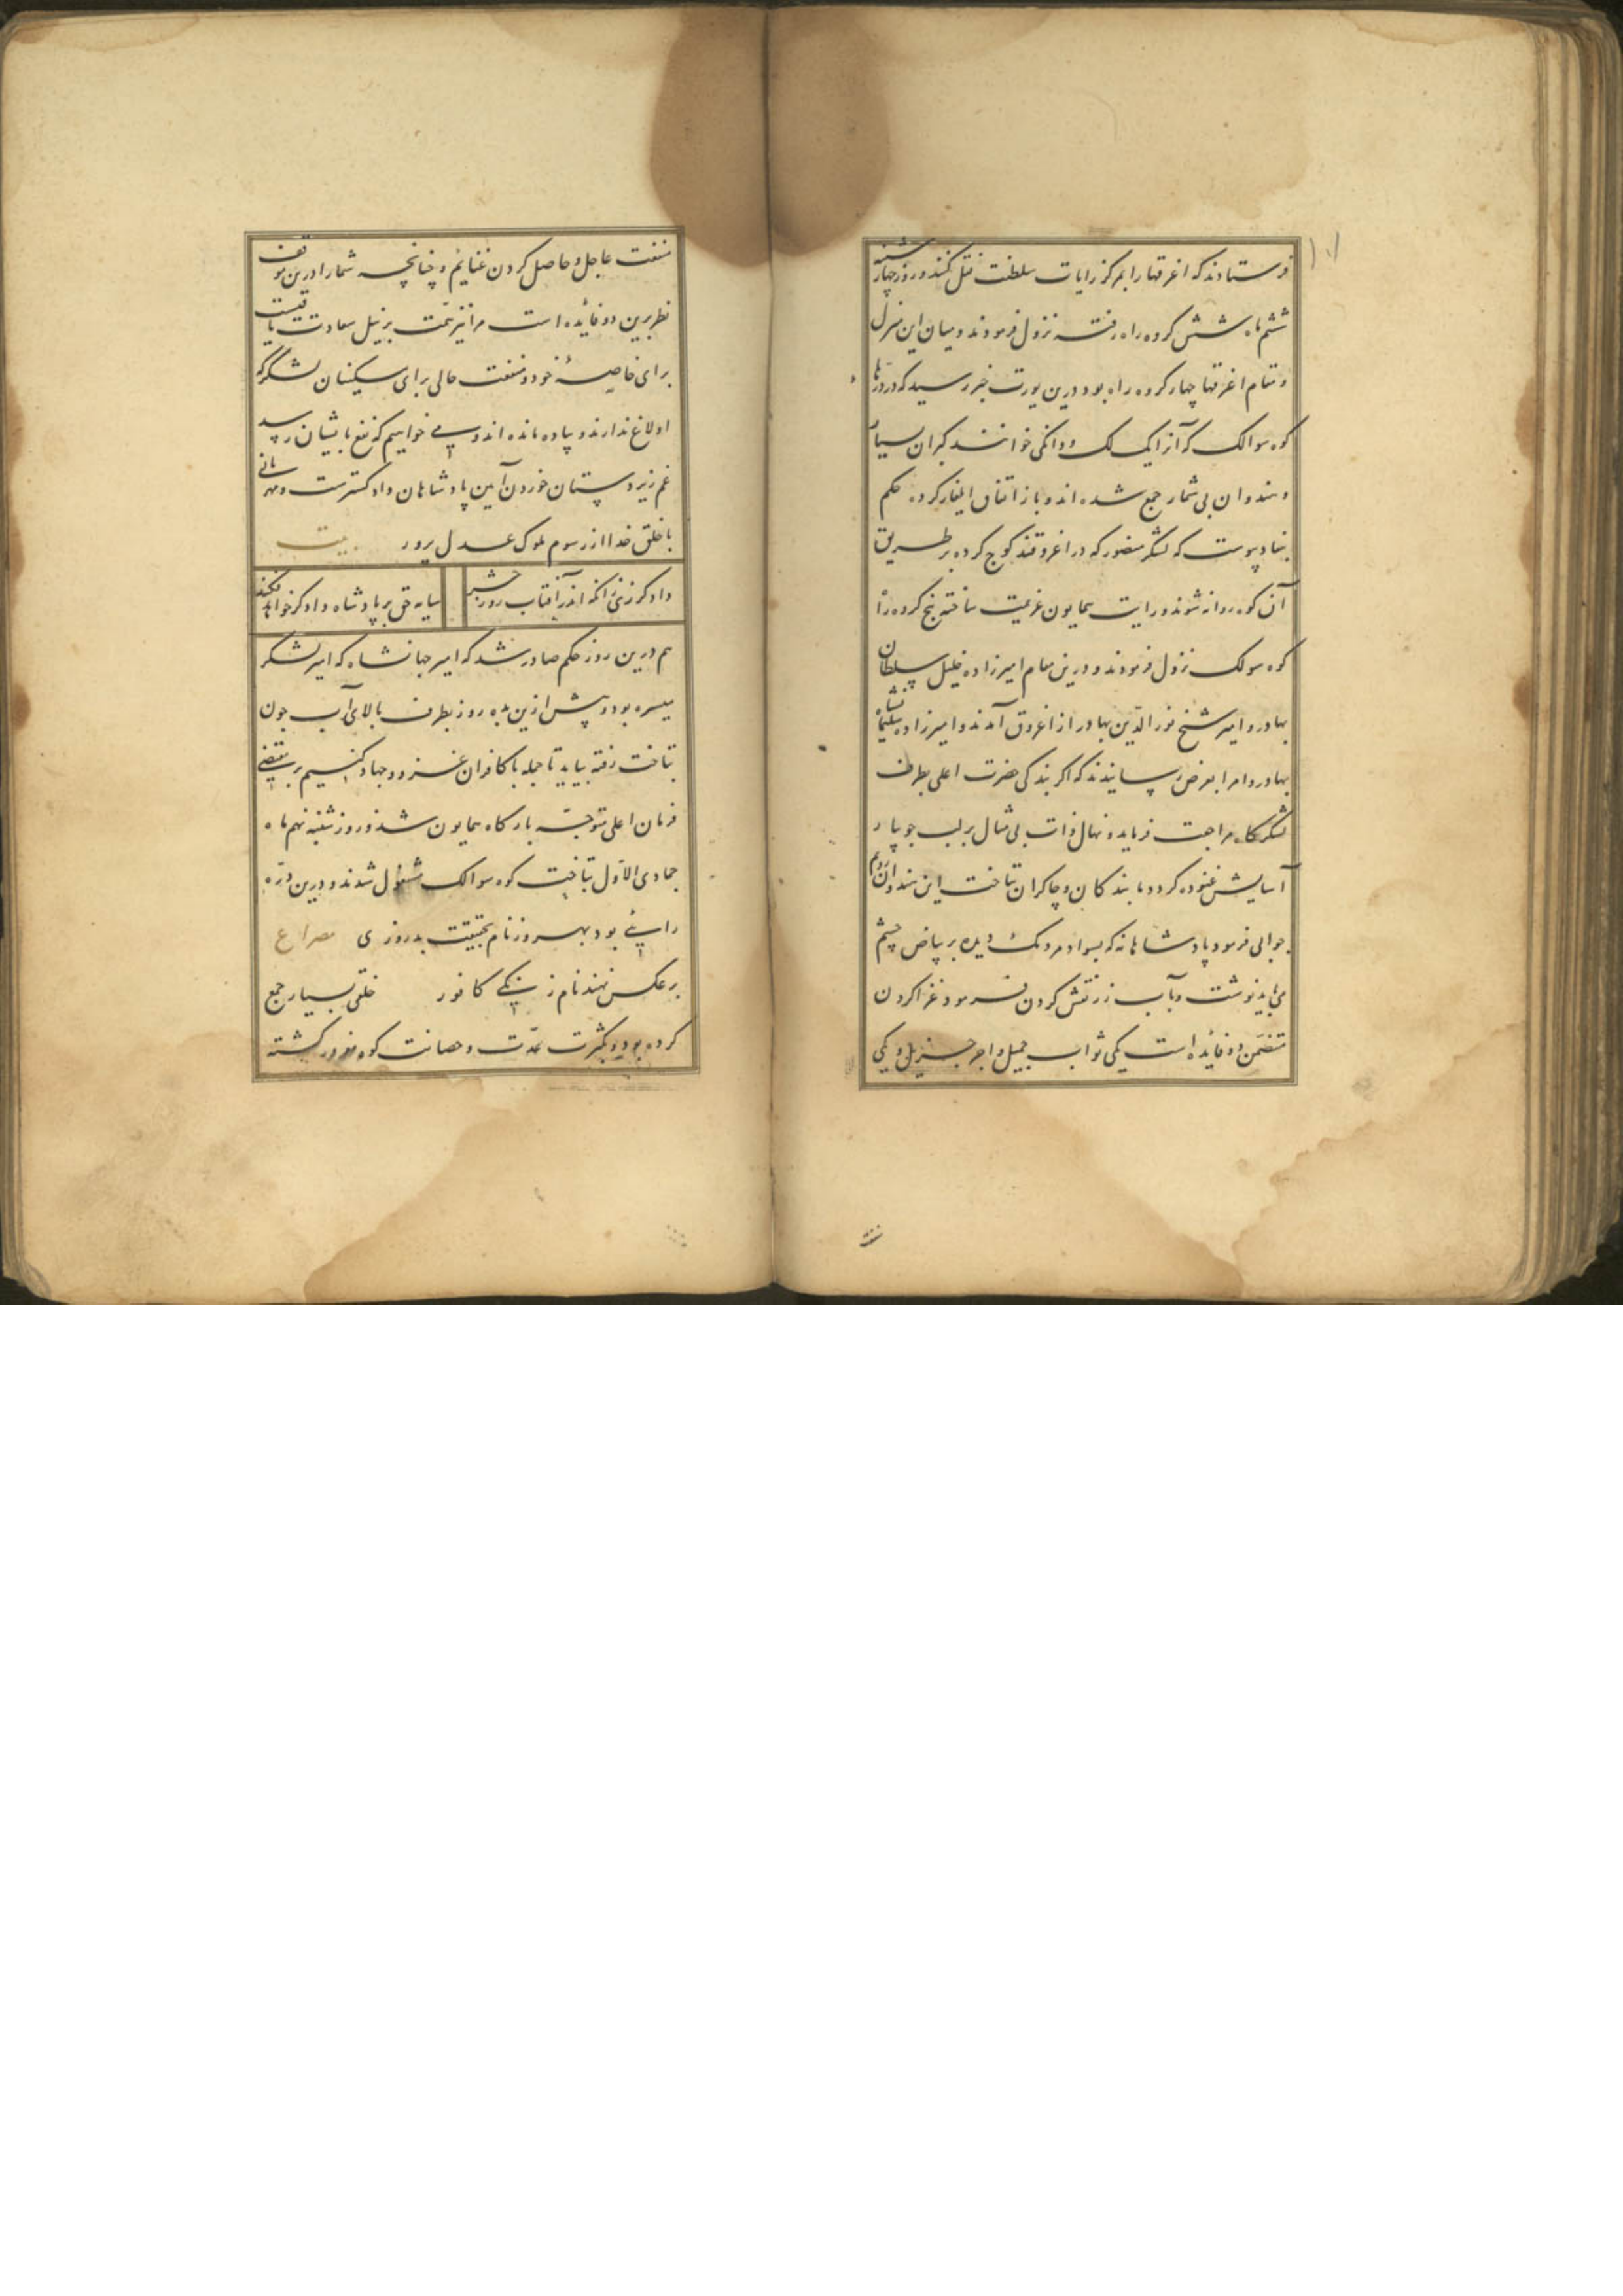 ۱۰۱
فرستادند که اغرقها را بمرکز رایات سلطنت نقل کنند و روز چهارشنبه
ششم ماه شش کروه راه رفته نزول فرمودند و میان این منزل
و مقام اغرقها چهار کروه راه بود درین یورت خبر رسید که در درّها
کوه سوالک که آنرا یک لک و دانکی خوانند کبران بسیار
و هندوان بی شمار جمع شده اند و باز اتفاق ایلغار کرده حکم
بنفاد پیوست که لشکر منصور که در اغروقند کوچ کرده بر طریق
آن کوه روانه شوند و رایت همایون عزیمت ساخته پنج کروه راه
کوه سولک نزول فرمودند و درین مقام امیرزاده خلیل سلطان
بهادر و امیر شیخ نور الدّین بهادر از اغروق آمدند و امیرزاده سلیمانشاه
بهادر و امرا بعرض رسانیدند که اکر بندکی حضرت اعلی بطرف
لشکرکاه مراجعت فرماید و نهال ذات بی مثال بر لب جویبار
آسایش غنوده کردد ما بندکان و چاکران بتاخت این هندوان رویم
جوابی فرمود پادشاهانه که بسواد مردمک دیده بر بیاض چشم
می باید نوشت و بآب زر نقش کردن فرمود غزا کردن
متضمّن دو فائده است یکی ثواب جمیل و اجر جزیل و یکی
منفعت
منفعت عاجل و حاصل کردن غنایم و چنانچه شما را درین موقف
نظر برین دو فائده است مرا نیز همّت بر نیل سعادت باقیست
برای خاصیهٔ خود و منفعت مالی برای مسکینان لشکر که
اولاغ ندارند و پیاده مانده اند و می خواهیم که نفع بایشان رسد
غم زیردستان خوردن آیین پادشاهان دادکسترست و مهربانی
با خلق خدا از رسوم ملوک عدل پرور بیت
دادکر زنی زانکه اندر آفتاب روز حشر سایه حق بر پادشاه دادکر خواهد فکند
هم درین روز حکم صادر شد که امیر جهانشاه که امیر لشکر
میسره بود و پیش ازین به ده روز بطرف بالای آب جون
بتاخت رفته بیاید تا جمله با کافران غزو و جهاد کنیم بر مقتضی
فرمان اعلی متوجّه بارکاه همایون شد و روز شنبه نهم ماه
جمادی الاوّل بتاخت کوه سوالک مشغول شدند و درین درّه
رایی بود بهروز نام بحقیقت بدروزی مصراع
برعکس نهند نام زنکی کافور خلقی بسیار جمع
کرده بود و بکثرت عدّت و حصانت کوه مغرور کشته